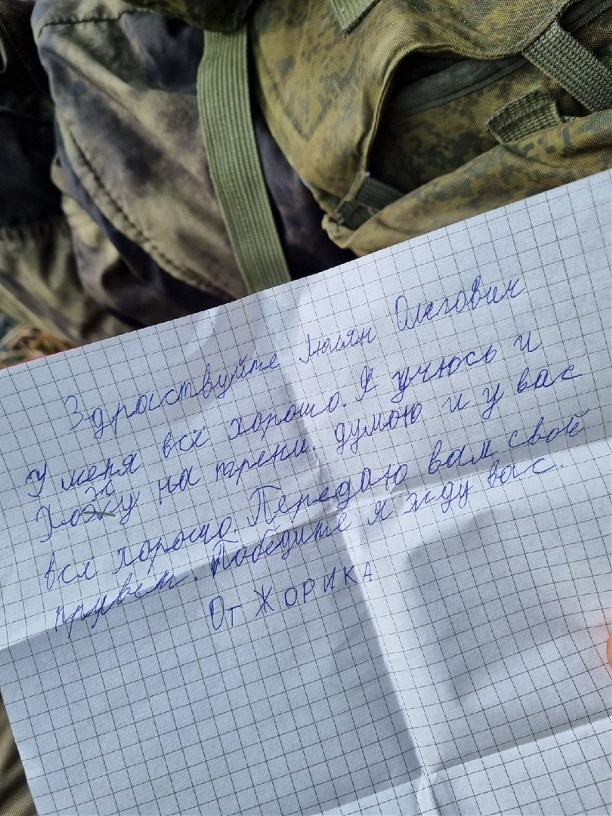 Здраствуйте Ульян Олегович
У меня всё хорошо. Я учюсь и
Хожу на трени. думою и у вас
всё хорошо. Передаю вам свой
привем. Победите я жду вас.
От ЖОРИКА